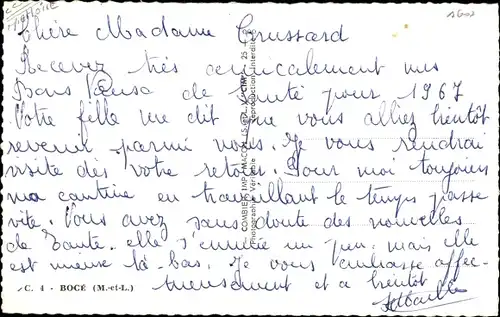 Chère Madame Crussard
Recevez très amicalement mes
bons Vœux de Santé pour 1967
Votre fille me dit que vous alliez bientôt
revenir parmi nous. Je vous rendrai
visite dès votre retour. Pour moi toujours
ma couture en travaillant le temps passe
vite. Vous avez sans doute des nouvelles
de Sante. elle s'ennuie un peu mais elle
est mieux là-bas. Je vous embrasse affec-
tueusement et a bientôt
C. 4 - BOCÉ (M.-et-L.)
COMBIER IMP. MACON